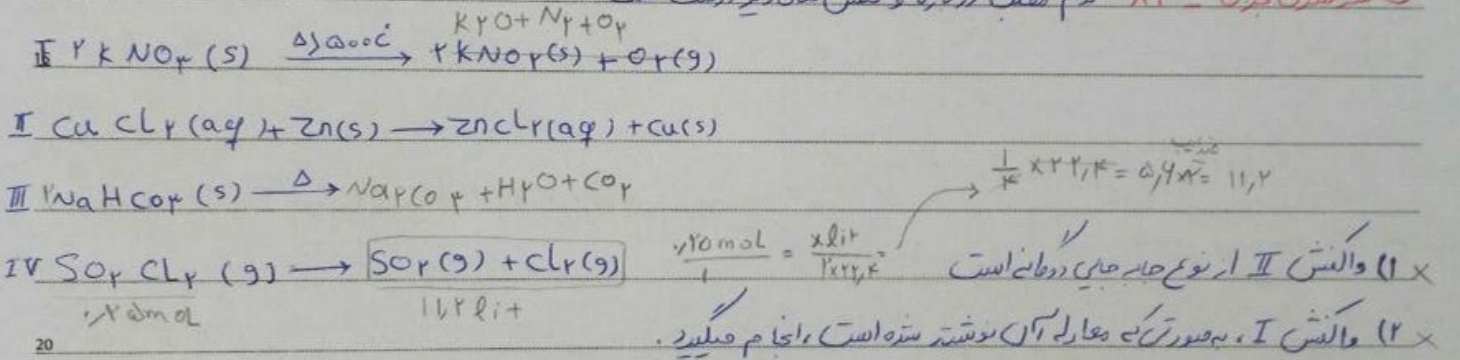 K۲O + N۲ + O۲
I ۲ K NO۳ (s) Δ > ۵۰۰°C → ۲KNO۲(s) + O۲(g)
II Cu Cl۲ (aq) + Zn(s) → ZnCl۲(aq) + Cu(s)
III ۲NaHCO۳ (s) Δ → Na۲CO۳ + H۲O + CO۲
۱/۴ × ۲۲,۴ = ۵,۶ × ۲ = ۱۱,۲
IV SO۲ Cl۲ (g) → SO۲(g) + Cl۲(g) ۰,۲۵ mol / ۱ = x lit / ۲×۲۲,۴ × ۱) واکنش II از نوع جابه جایی دوگانه است
۰,۲۵ mol ۱۱,۲ lit
× ۲) واکنش I، به صورتی که معادله آن نوشته شده است، انجام میگیرد.
20